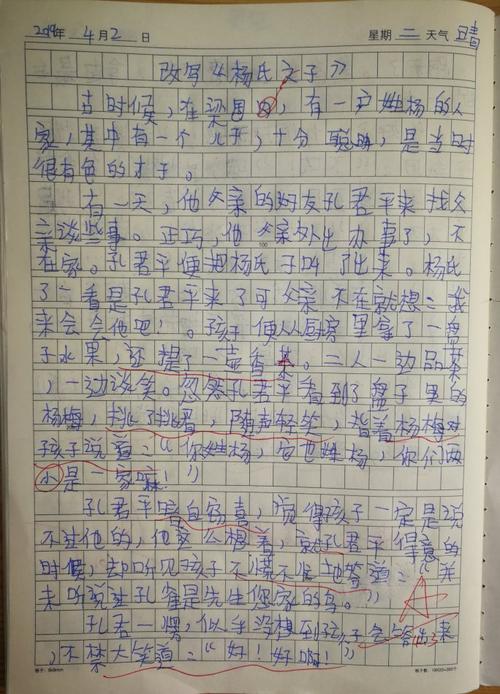 2019年 4月2日 星期 二 天气 晴
改写《杨氏之子》
古时候，在梁国，有一户姓杨的人
家，其中有一个儿子，十分聪明，是当时
很有名的才子。
有一天，他父亲的好友孔君平来找父
亲谈些事。正巧，他父亲外出办事了，不
在家。孔君平便把杨氏子叫了出来。杨氏
了一看是孔君平来了可父亲不在就想：我
来会会他吧！孩子便从厨房里拿了一盘
子水果，还提了一壶香茶。二人一边品茶
，一边谈笑。忽然孔君平看到了盘子里的
杨梅，挑了挑眉，随声轻笑，指着杨梅对
孩子说道：“你姓杨，它也姓杨，你们两
个是一家嘛！”
孔君平暗自窃喜，觉得孩子一定是说
不过他的，他这么想着，就孔君平得意的
时候，却听见孩子不慌不忙地答道：“并
未听说过孔雀是先生您家的鸟。” A
孔君一愣，似乎没想到孩子会答出来
，不禁大笑道：“好！好啊！”
100